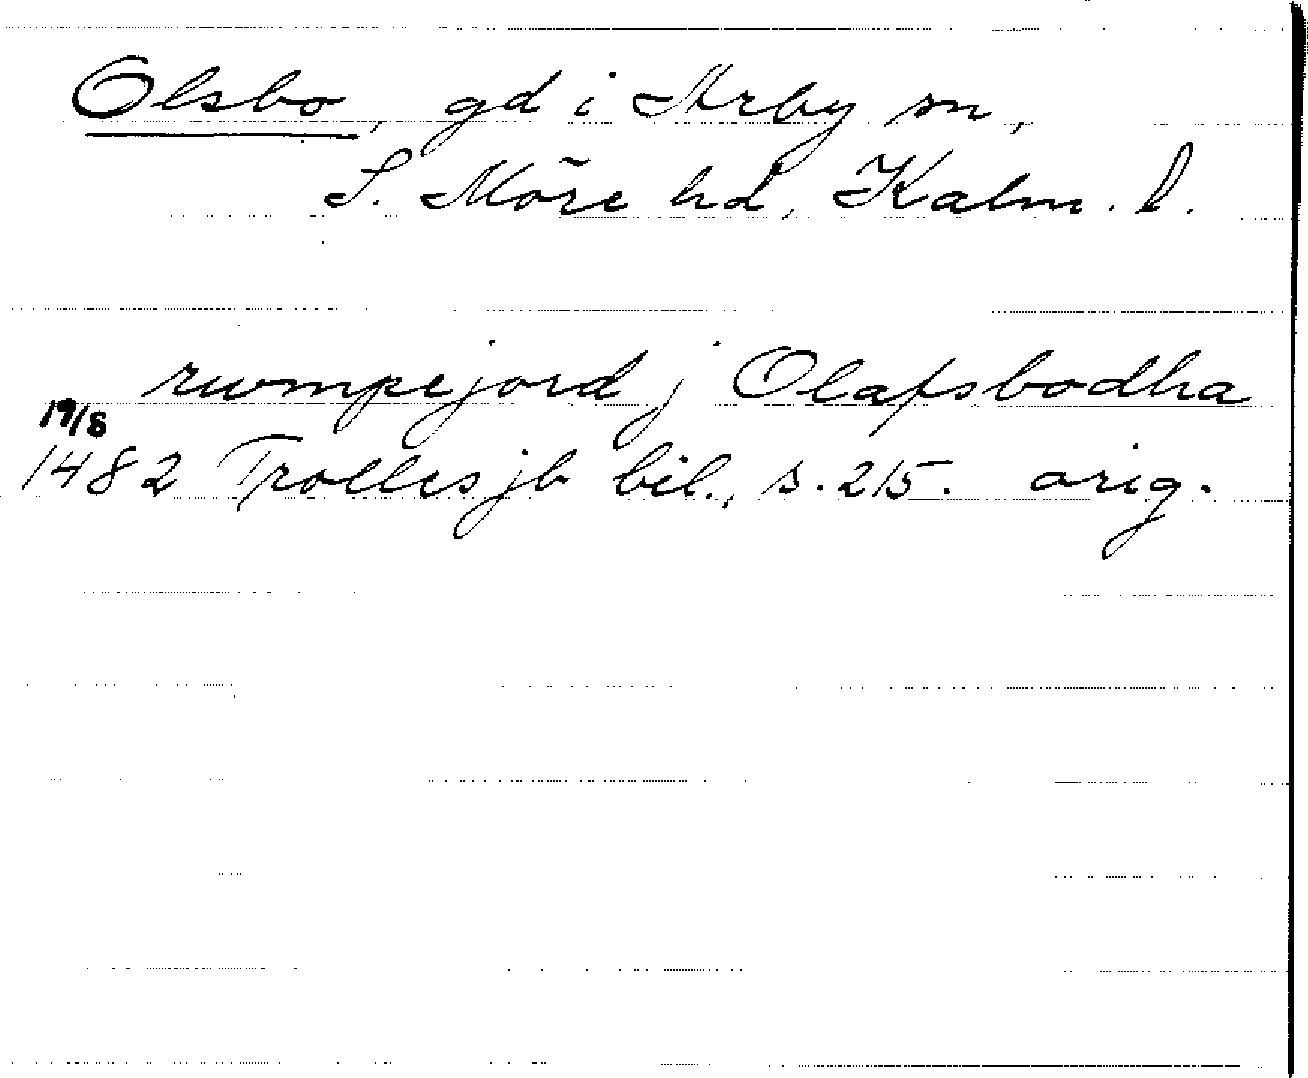 Olsbo, gd i Arby sn,
S. Möre hd, Kalm. l.
rwmpejord j Olafsbodha
19/8
1482 Trolles jb bil., s. 215. orig.